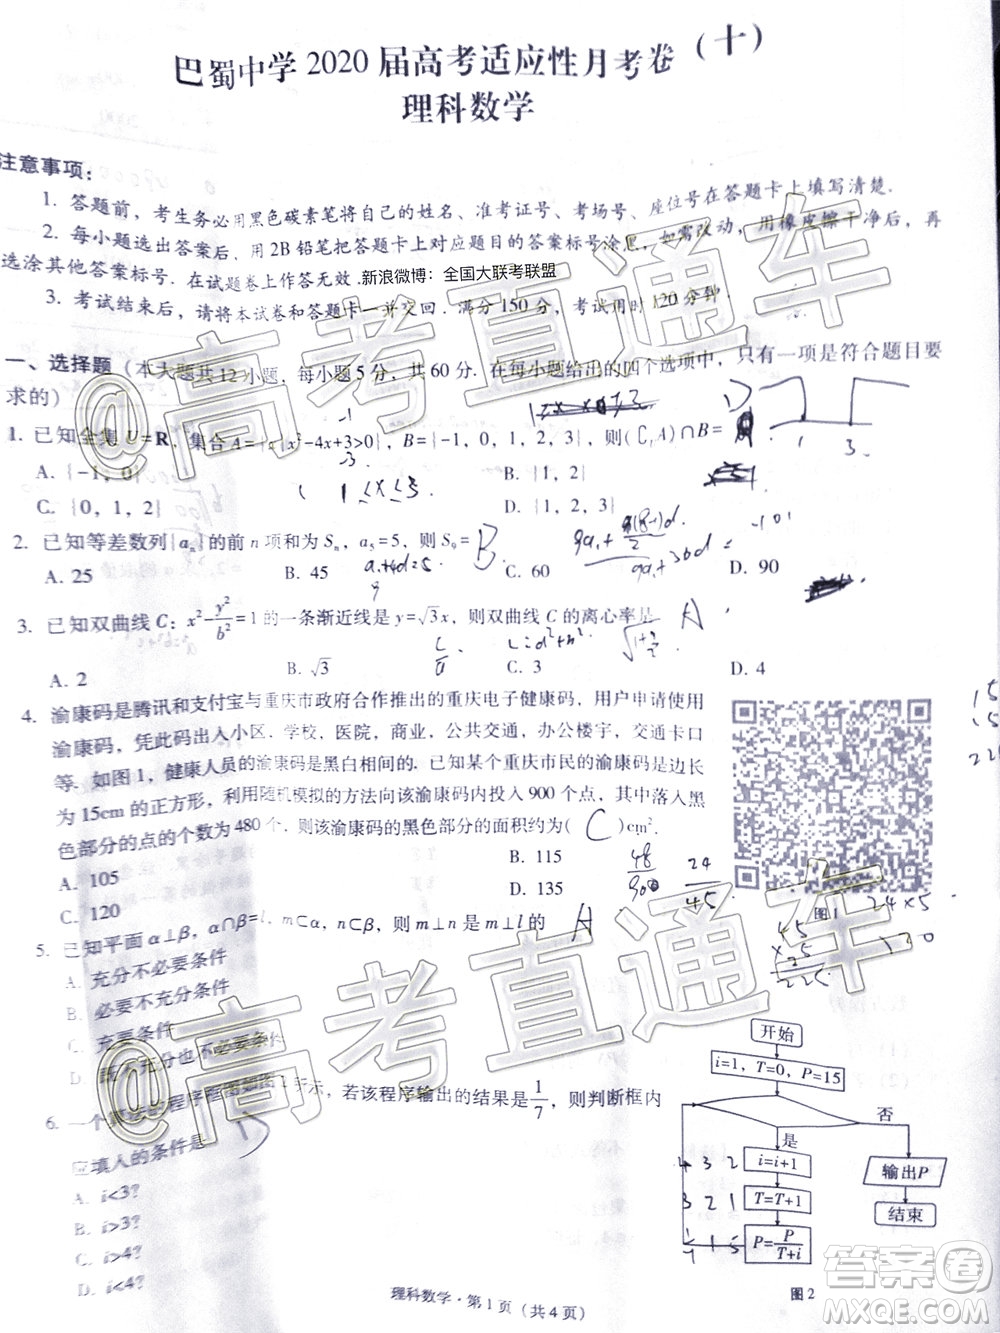 巴蜀中学 2020 届高考适应性月考卷（十）
理科数学
注意事项：
1. 答题前，考生务必用黑色碳素笔将自己的姓名、准考证号、考场号、座位号在答题卡上填写清楚.
2. 每小题选出答案后，用 2B 铅笔把答题卡上对应题目的答案标号涂黑，如需改动，用橡皮擦干净后，再
选涂其他答案标号. 在试题卷上作答无效.新浪微博：全国大联考联盟
3. 考试结束后，请将本试卷和答题卡一并交回. 满分 150 分，考试用时 120 分钟.
一、选择题（本大题共 12 小题，每小题 5 分，共 60 分. 在每小题给出的四个选项中，只有一项是符合题目要
求的）
1. 已知全集 U=R，集合 A={x|x²-4x+3>0}，B={-1, 0, 1, 2, 3}，则(∁ᵤA)∩B=
A. {-1, 0}
B. {1, 2}
C. {0, 1, 2}
D. {1, 2, 3}
1≤x≤3
2. 已知等差数列{aₙ}的前 n 项和为 Sₙ，a₅=5，则 S₉= B
A. 25
B. 45
C. 60
D. 90
a₁+4d=5
9a₁+36d
3. 已知双曲线 C：x²-y²/b²=1 的一条渐近线为 y=√3x，则双曲线 C 的离心率是 A
A. 2
B. √3
C. 3
D. 4
4. 渝康码是腾讯和支付宝与重庆市政府合作推出的重庆电子健康码，用户申请
渝康码，凭此码出入小区、学校，医院，商业，公共交通，办公楼宇，交通卡口
等. 如图 1，健康人员的渝康码是黑白相间的. 已知某个重庆市民的渝康码是边长
为 15cm 的正方形，利用随机模拟的方法向该渝康码内投入 900 个点，其中落入黑
色部分的点的个数为 480 个. 则该渝康码的黑色部分的面积约为( C )cm².
A. 105
B. 115
C. 120
D. 135
48/900
24/45
图 1
24×5
45
×25
225
120
5. 已知平面 α⊥β，α∩β=l，m⊂α，n⊂β，则 m⊥n 是 m⊥l 的 A
A. 充分不必要条件
B. 必要不充分条件
C. 充要条件
D. 既不充分也不必要条件
6. 一个算法的程序框图如图 2 所示，若该程序输出的结果是1/7，则判断框内
应填入的条件是
A. i<3?
B. i>3?
C. i>4?
D. i<4?
开始
i=1，T=0，P=15
否
是
i=i+1
T=T+1
P=P/(T+i)
输出P
结束
4 3 2
3 2 1
图 2
理科数学·第 1 页（共 4 页）
@高考直通车
@高考直通车
答案圈
MXQE.COM